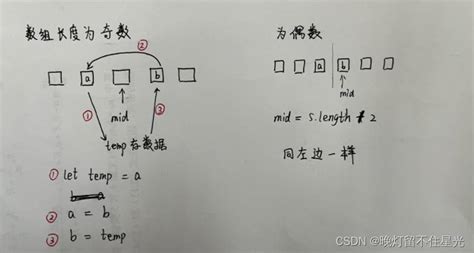 数组长度为奇数
②
a
b
①
mid
③
temp存数据
① let temp = a
② a = b
③ b = temp
为偶数
a
b
mid
mid = s.length / 2
同左边一样
CSDN @晚灯留不住星光